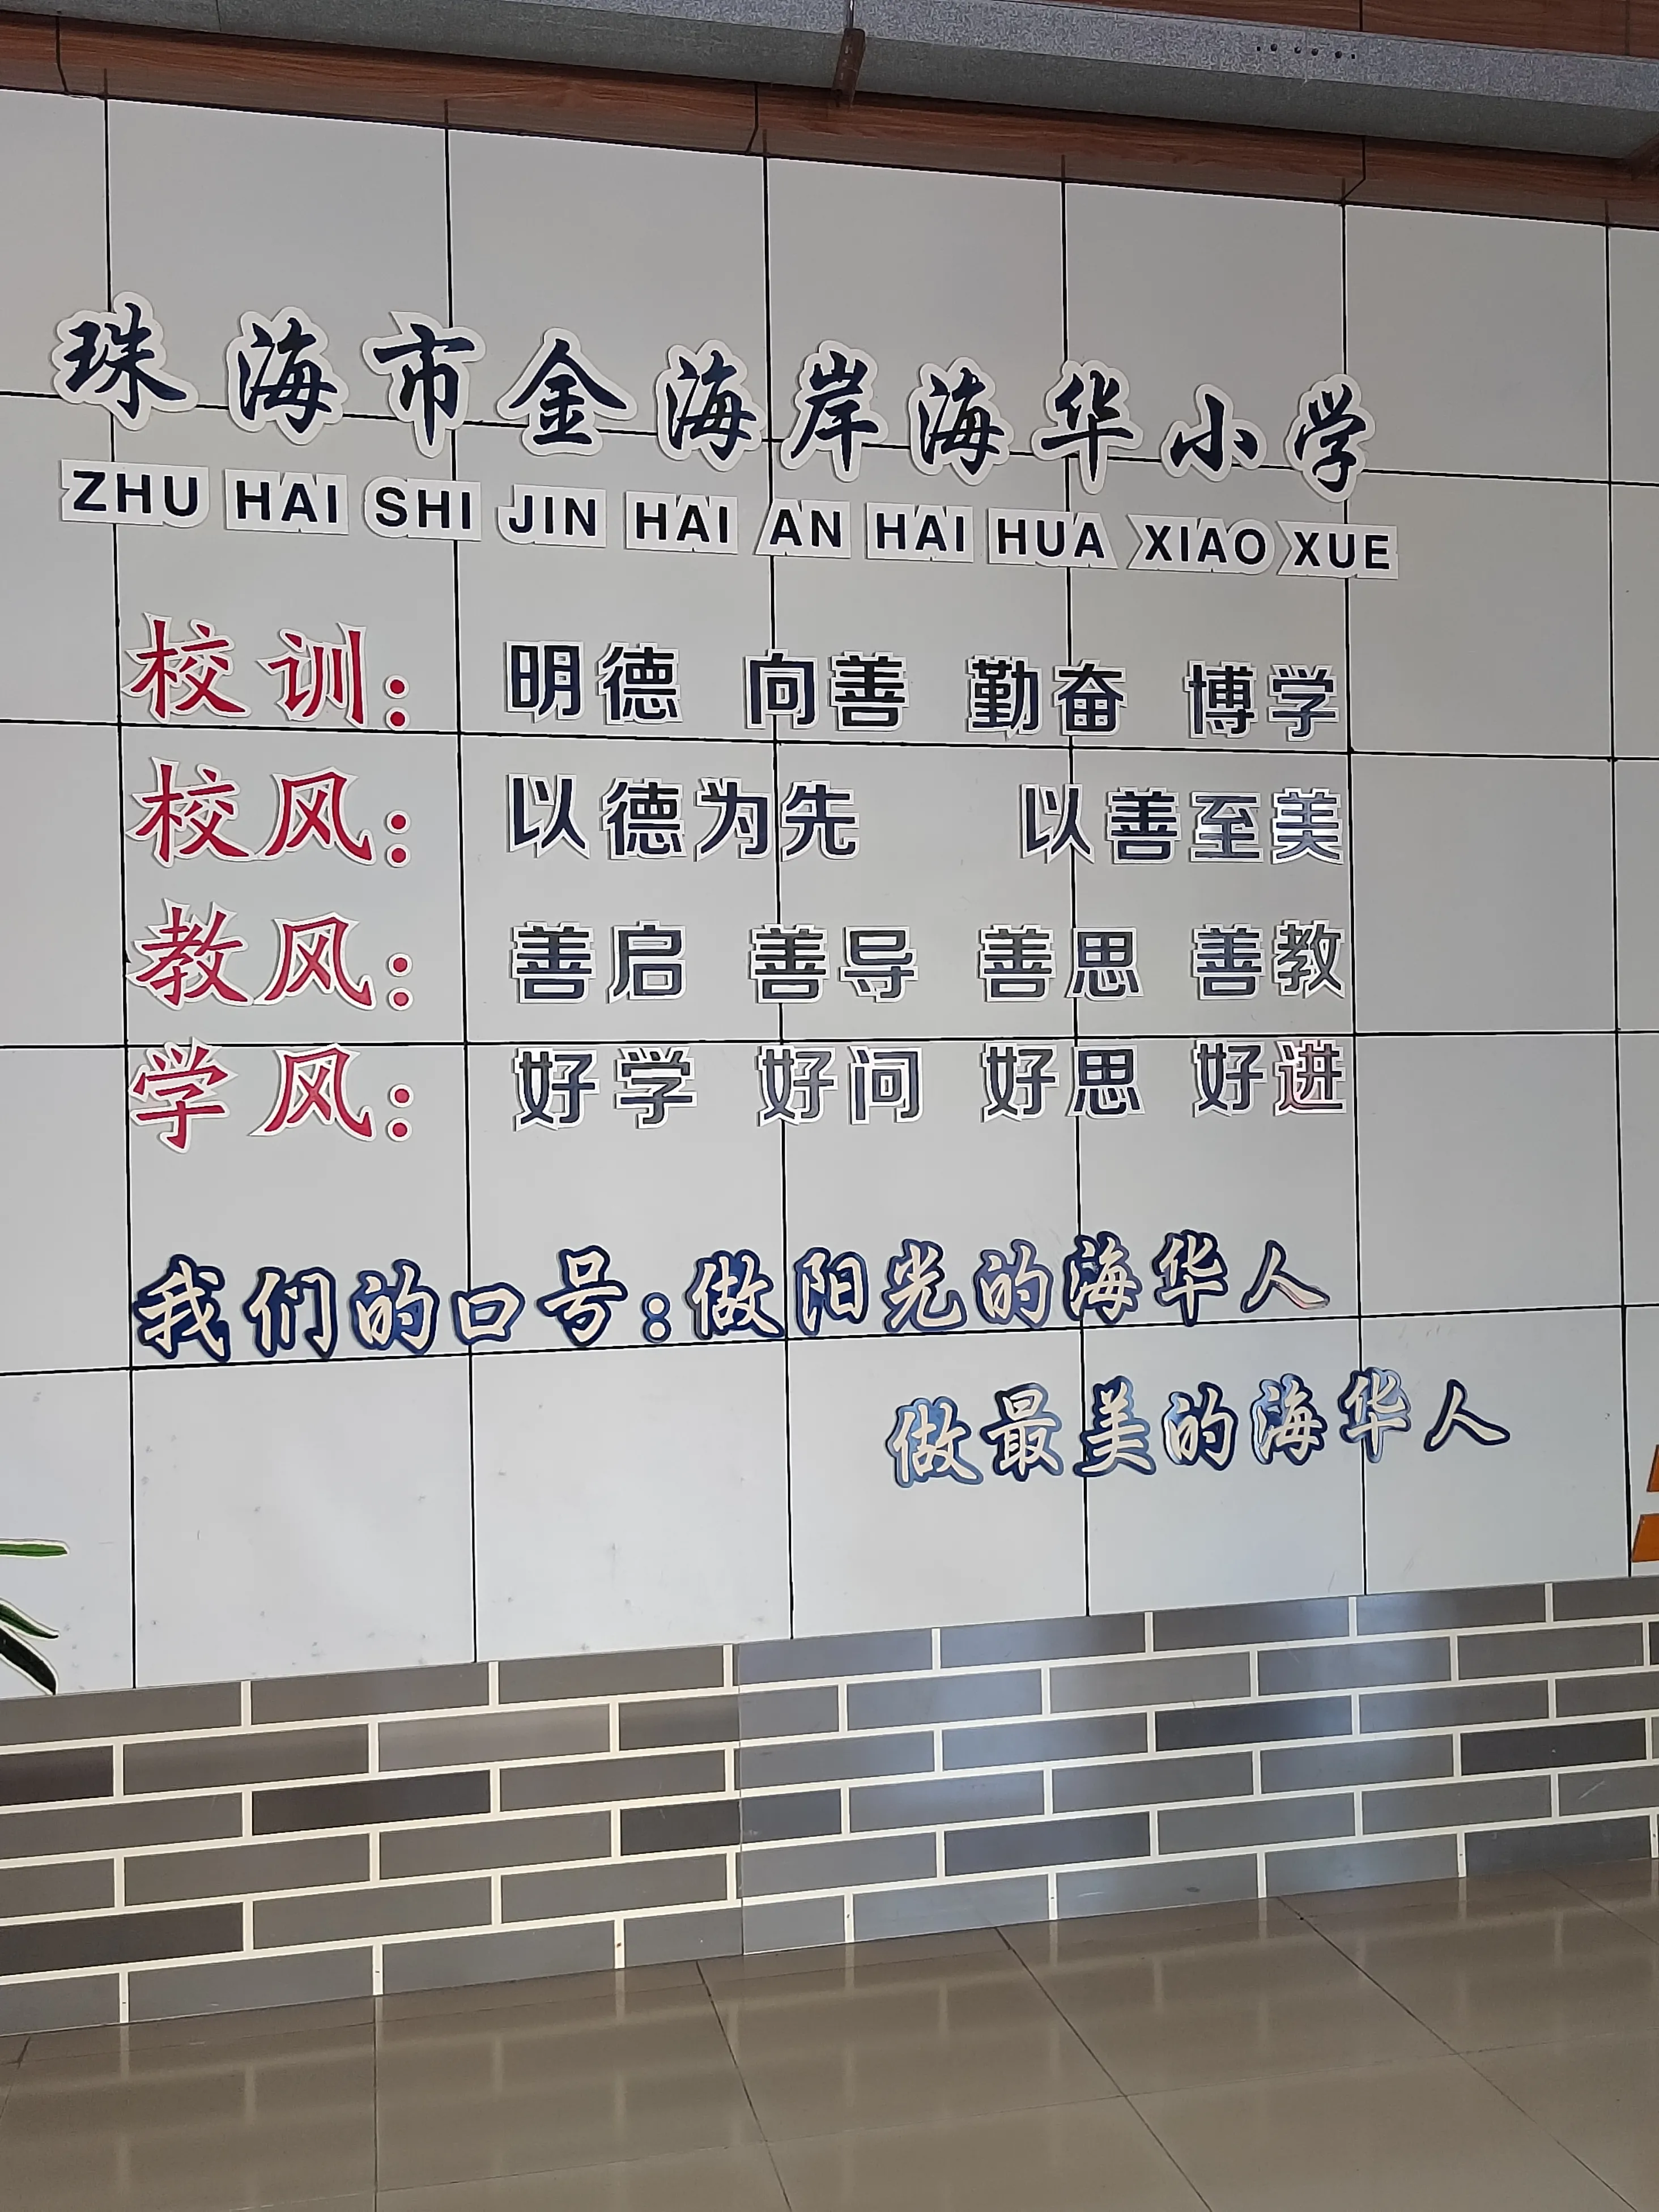 珠海市金海岸海华小学
ZHU HAI SHI JIN HAI AN HAI HUA XIAO XUE
校训： 明德 向善 勤奋 博学
校风： 以德为先 以善至美
教风： 善启 善导 善思 善教
学风： 好学 好问 好思 好进
我们的口号：做阳光的海华人
做最美的海华人